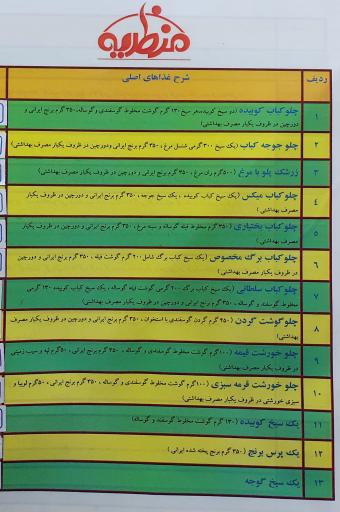 منظریه
ردیف
شرح غذاهای اصلی
۱
چلوکباب کوبیده (دو سیخ کوبیده هر سیخ ۱۳۰ گرم گوشت مخلوط گوسفندی وگوساله، ۳۵۰ گرم برنج ایرانی و
دورچین در ظروف یکبار مصرف بهداشتی)
۲
چلو جوجه کباب (یک سیخ ۳۰۰ گرمی شامل مرغ ، ۳۵۰ گرم برنج ایرانی ودورچین در ظروف یکبار مصرف بهداشتی)
۳
زرشک پلو با مرغ (۵۰۰ گرم ران مرغ ، ۳۵۰ گرم برنج ایرانی و دورچین در ظروف یکبار مصرف بهداشتی)
۴
چلوکباب میکس (یک سیخ کباب کوبیده ، یک سیخ جوجه ، ۳۵۰ گرم برنج ایرانی و دورچین در ظروف یکبار
مصرف بهداشتی)
۵
چلوکباب بختیاری (۳۵۰ گرم مخلوط فیله گوساله و سینه مرغ ، ۳۵۰ گرم برنج ایرانی و دورچین در ظروف یکبار
مصرف بهداشتی)
۶
چلوکباب برگ مخصوص (یک سیخ کباب برگ شامل ۲۰۰ گرم گوشت فیله ، ۳۵۰ گرم برنج ایرانی و دورچین
در ظروف یکبار مصرف بهداشتی)
۷
چلوکباب سلطانی (یک سیخ کباب برگ ۲۰۰ گرمی گوشت فیله گوساله ، یک سیخ کباب کوبیده ۱۳۰ گرمی
مخلوط گوسفند و گوساله ، ۳۵۰ گرم برنج ایرانی و دورچین در ظروف یکبار مصرف بهداشتی)
۸
چلوگوشت گردن (۴۵۰ گرم گردن گوسفندی با استخوان ، ۳۵۰ گرم برنج ایرانی و دورچین در ظروف یکبار مصرف
بهداشتی)
۹
چلو خورشت قیمه (۱۰۰ گرم گوشت مخلوط گوسفندی و گوساله ، ۳۵۰ گرم برنج ایرانی ، ۵۰ گرم لپه و سیب زمینی
در ظروف یکبار مصرف بهداشتی)
۱۰
چلو خورشت قرمه سبزی (۱۰۰ گرم گوشت مخلوط گوسفندی و گوساله ، ۳۵۰ گرم برنج ایرانی ، ۵۰ گرم لوبیا و
سبزی خورشتی در ظروف یکبار مصرف بهداشتی)
۱۱
یک سیخ کوبیده (۱۳۰ گرم گوشت مخلوط گوسفند و گوساله)
۱۲
یک پرس برنج (۳۵۰ گرم برنج پخته شده ایرانی)
۱۳
یک سیخ گوجه